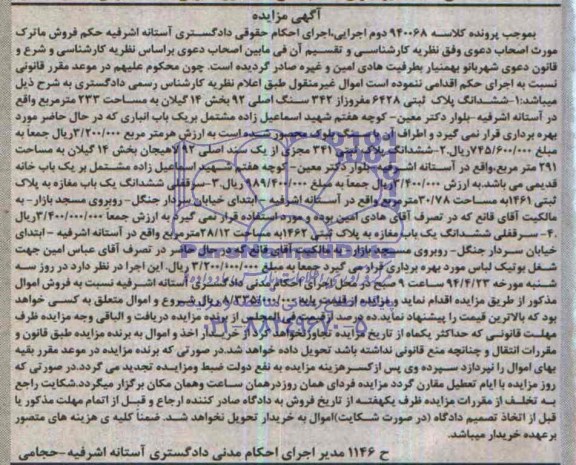 آگهی مزایده
بموجب پرونده کلاسه ۹۴۰۰۶۸ دوم اجرایی،اجرای احکام حقوقی دادگستری آستانه اشرفیه حکم فروش ماترک
مورث اصحاب دعوی وفق نظریه کارشناسی و تقسیم آن فی مابین اصحاب دعوی براساس نظریه کارشناسی و شرع و
قانون دعوی شهربانو بهمنیار بطرفیت هادی امین و غیره صادر گردیده است. چون محکوم علیهم در موعد مقرر قانونی
نسبت به اجرای حکم اقدامی ننموده است اموال غیرمنقول طبق اعلام نظریه کارشناس رسمی دادگستری به شرح ذیل
میباشد:۱-ششدانگ پلاک ثبتی ۶۴۲۸ مفروزاز ۳۴۲ سنگ اصلی ۹۲ بخش ۱۴ گیلان به مساحت ۲۳۳ مترمربع واقع
در آستانه اشرفیه -بلوار دکتر معین- کوچه هفتم شهید اسماعیل زاده مشتمل بریک باب انباری که در حال حاضر مورد
بهره برداری قرار نمی گیرد و اطراف بلوک محصور شده است به ارزش هرمتر مربع ۳/۲۰۰/۰۰۰ ریال جمعاً به
مبلغ ۷۴۵/۶۰۰/۰۰۰ ریال.۲-ششدانگ پلاک ثبتی ۳۴۱ مجزی از یک سند اصلی ۹۲ لاهیجان بخش ۱۴ گیلان به مساحت
۲۹۱ متر مربع،واقع در آستانه اشرفیه -بلوار دکتر معین- کوچه هفتم شهید اسماعیل زاده مشتمل بر یک باب خانه
قدیمی می باشد.به ارزش ۳/۴۰۰/۰۰۰ ریال جمعاً به مبلغ ۹۸۹/۴۰۰/۰۰۰ ریال.۳-سرقفلی ششدانگ یک باب مغازه به پلاک
ثبتی ۱۴۶۱به مساحت ۳۰/۷۸مترمربع واقع در آستانه اشرفیه - ابتدای خیابان سردار جنگل- روبروی مسجد بازار- به
مالکیت آقای قانع که در تصرف آقای هادی امین بوده و مورد استفاده قرار نمی گیرد به ارزش جمعاً ۳/۴۰۰/۰۰۰/۰۰۰ریال
.۴- سرقفلی ششدانگ یک باب مغازه به پلاک ثبتی ۱۴۶۲به مساحت ۲۸/۱۲مترمربع واقع در آستانه اشرفیه - ابتدای
خیابان سردار جنگل- روبروی مسجد بازار- به مالکیت آقای قانع که در حال حاضر در تصرف آقای عباس امین جهت
شغل بوتیک لباس مورد بهره برداری قرار می گیرد جمعاً به مبلغ ۳/۲۰۰/۰۰۰/۰۰۰ ریال.این اجرا در نظر دارد در روز سه
شنبه مورخه ۹۴/۴/۲۳ ساعت ۹ صبح در محل اجرای احکام مدنی دادگستری آستانه اشرفیه نسبت به فروش اموال
مذکور از طریق مزایده اقدام نماید و مزایده از قیمت پایه ۸/۳۳۵/۰۰۰/۰۰۰ ریال شروع و اموال متعلق به کسی خواهد
بود که بالاترین قیمت را پیشنهاد نماید.ده درصد از قیمت فی المجلس از برنده مزایده دریافت و الباقی وجه مزایده ظرف
مهلت قانونی که حداکثر یکماه از تاریخ مزایده تجاوز نخواهد کرد از خریدار اخذ و اموال به برنده مزایده طبق قانون و
مقررات انتقال و چنانچه منع قانونی نداشته باشد تحویل داده خواهد شد.در صورتی که برنده مزایده در موعد مقرر بقیه
بهای اموال را نپردازد سپرده وی پس از کسر هزینه مزایده به نفع دولت ضبط ومزایده تجدید می گردد.در صورتی که
روز مزایده با ایام تعطیل مقارن گردد مزایده فردای همان روز درهمان ساعت وهمان مکان برگزار میگردد.شکایت راجع
به تخلف از مقررات مزایده ظرف یکهفته از تاریخ فروش به دادگاه صادر کننده ارجاع و قبل از اتمام مهلت مذکور یا
قبل از اتخاذ تصمیم دادگاه (در صورت شکایت)اموال به خریدار تحویل نخواهد شد. ضمناً کلیه ی هزینه های متصور
برعهده خریدار میباشد.
ح ۱۱۴۶ مدیر اجرای احکام مدنی دادگستری آستانه اشرفیه-حجامی